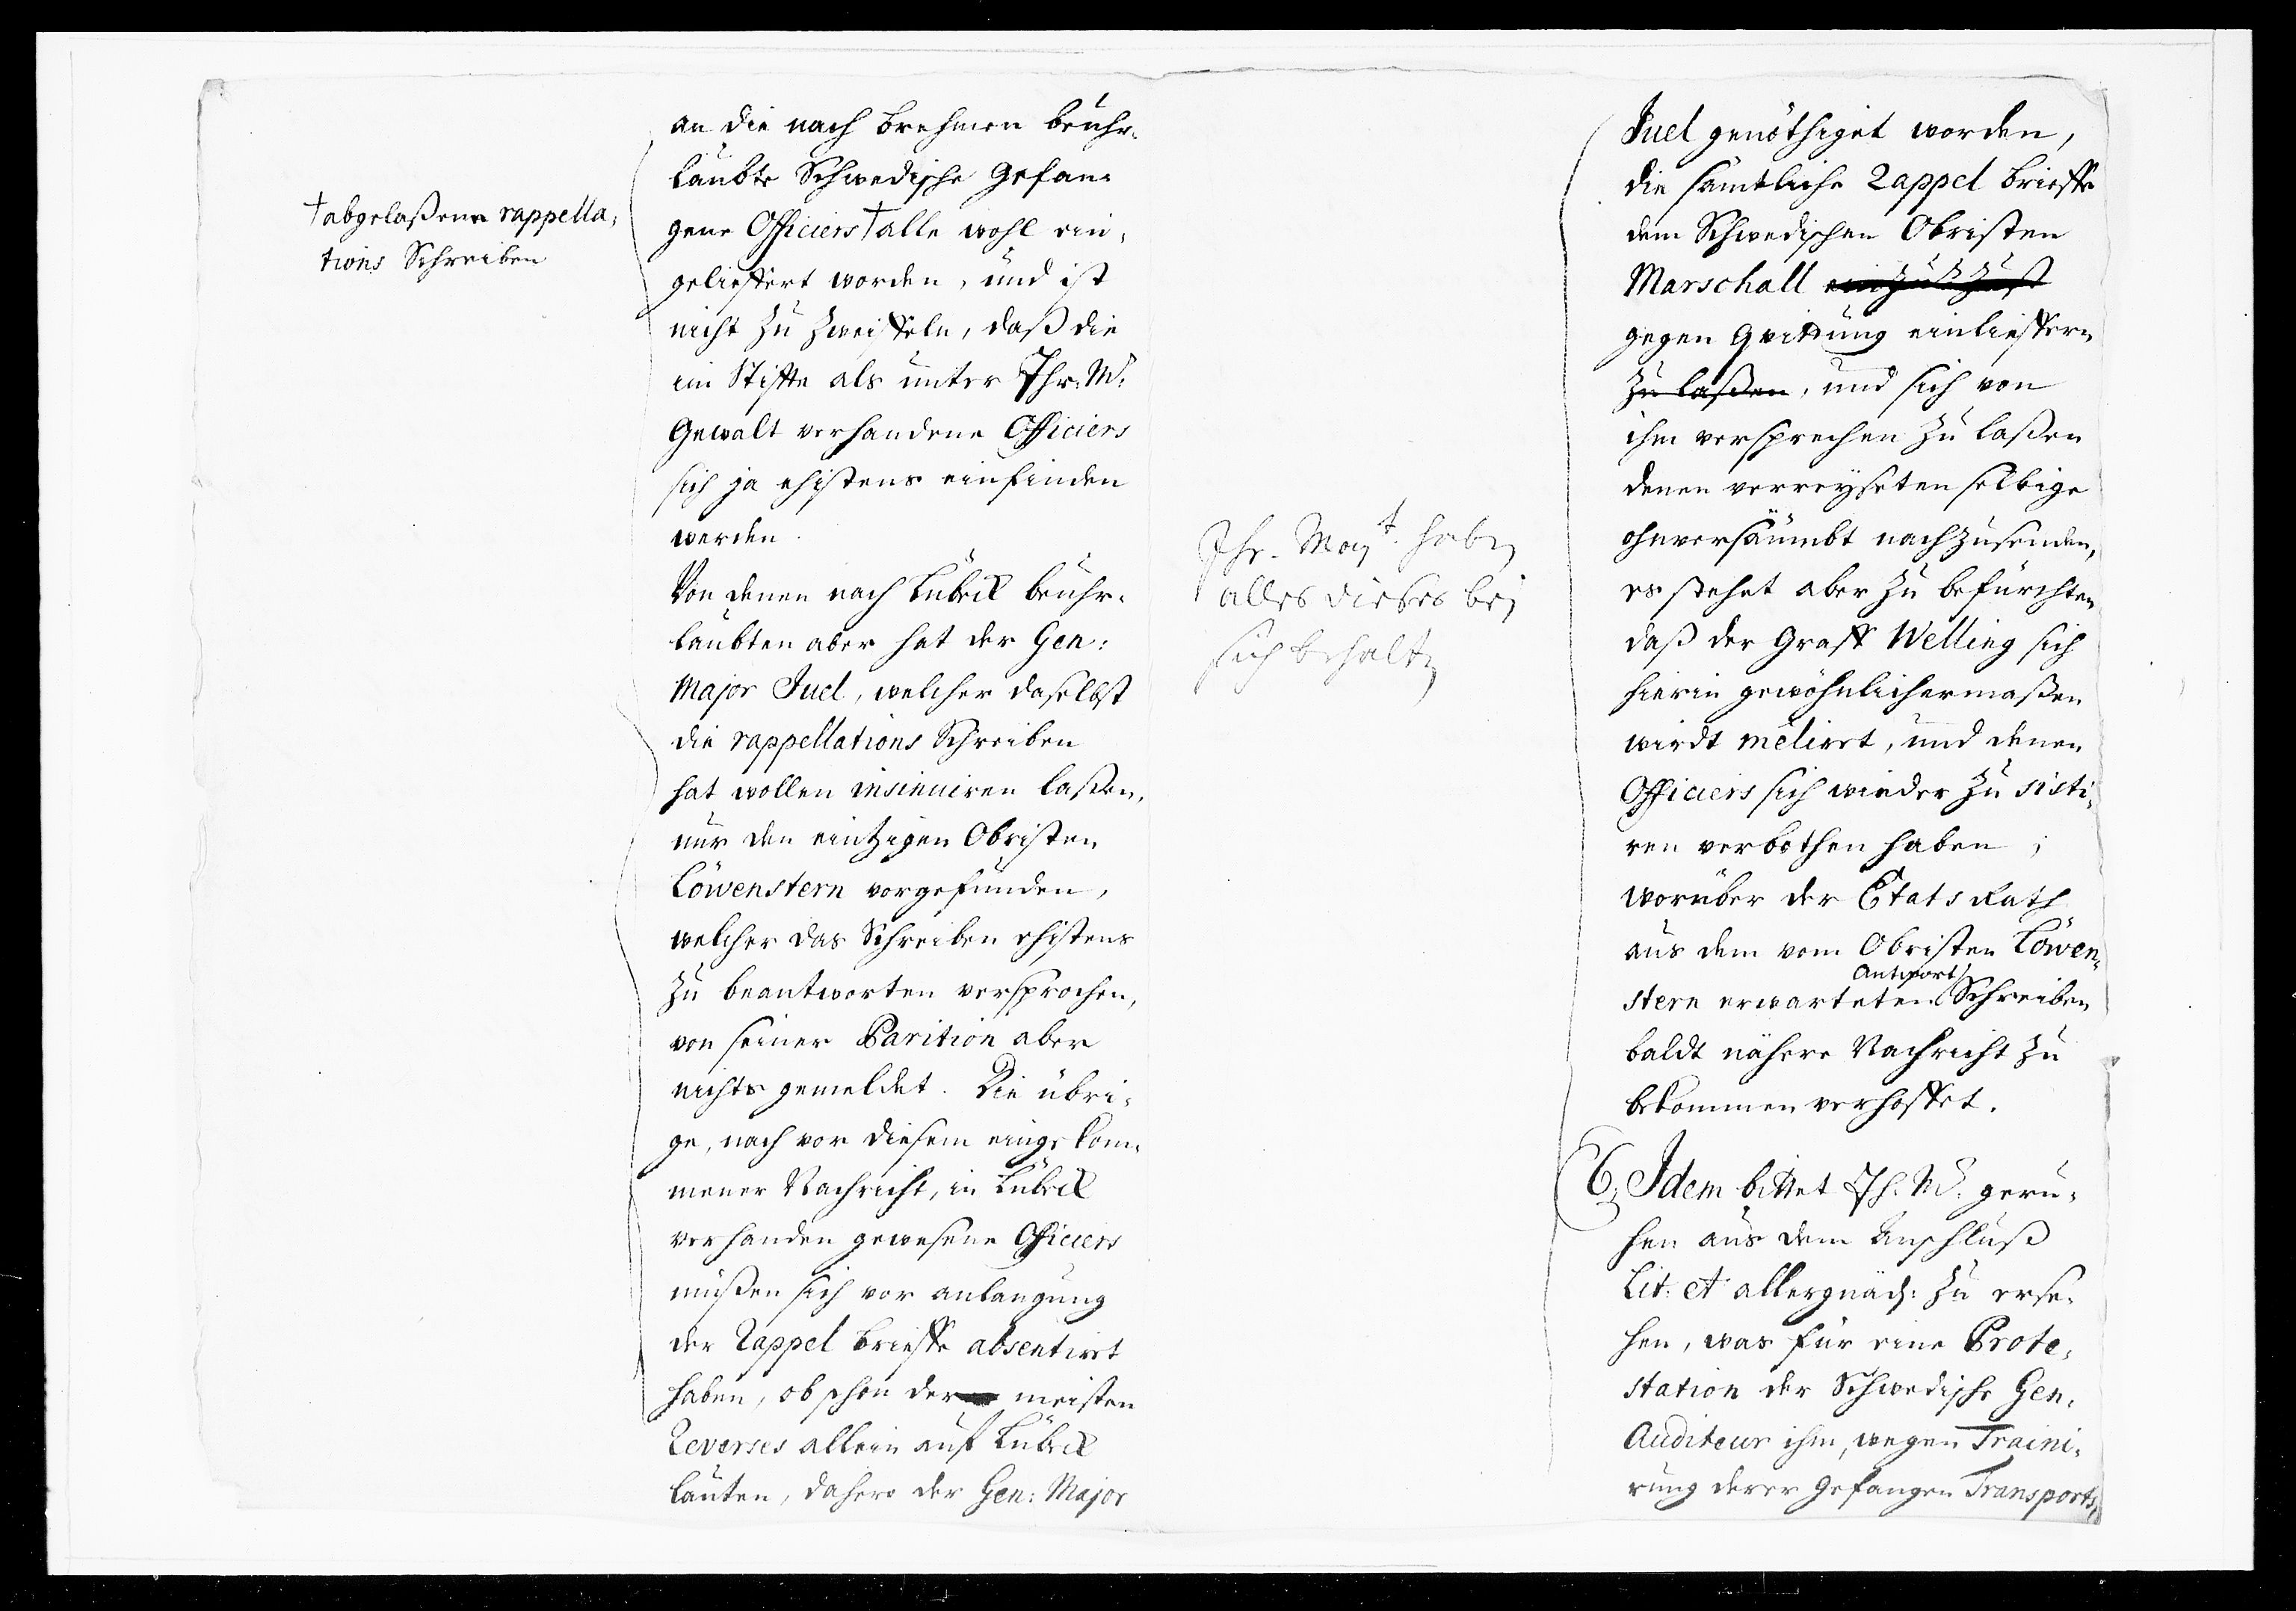 †abgelaßene rappella,
tions Schreiben
an die nach Brehmen beuhr,
laubte Schwedische Gefan,
gene Officiers † alle wohl ein,
geliefert worden, und ist
nicht zu zweiffeln, daß die
im Stiffte als unter Ihr: M:
Gewalt verhandene Officiers
sich ja ehistens einfinden
werden.
Von denen nach Lübeck beuhr,
laubten aber hat der Gen:
Major Juel, welcher daselbst
die rappellations Schreiben
hat wollen insinuiren laßen,
nur den eintzigen Obristen
Löwenstern vorgefunden,
welcher das Schreiben ehistens
zu beantworten versprochen,
von seiner Parition aber
nichts gemeldet. Die übri,
ge, nach vor diesem eingekom,
mener Nachricht, in Lübeck
verhanden gewesene Officiers
müßen sich vor anlangung
der Rappel brieffe absentirt
haben, obschon der meisten
Reverses allein auf Lübeck
lauten, dahero der Gen: Major
Ihr. Mayt. haben
alles dieses bey
sich behalten
Juel genöthiget worden,
die sämtliche Rappel brieffe
dem Schwedischen Obristen
Marschall
gegen Quittung einlieffern
zu laßen, und sich von
ihm versprechen zu laßen
denen verreyseten selbige
ohnversäumbt nachzusenden,
es stehet aber zu befürchten
daß der Graff Welling sich
hierin gewöhnlichermaßen
wirdt mêlirt, und denen
Officiers sich wieder zu sisti,
ren verbothen haben;
worüber der Etats Rath
aus dem vom Obristen Löwen,
stern erwarteten Antwort Schreiben
baldt nähere Nachricht zu
bekommen verhoffet.
6, Idem bittet Ih. M. geru,
hen aus dem Anschluß
Lit: A allergnäd: zu erse,
hen, was für eine Prote,
station der Schwedische Gen,
Auditeur ihm, wegen Traini,
rung derer Gefangen Transports,